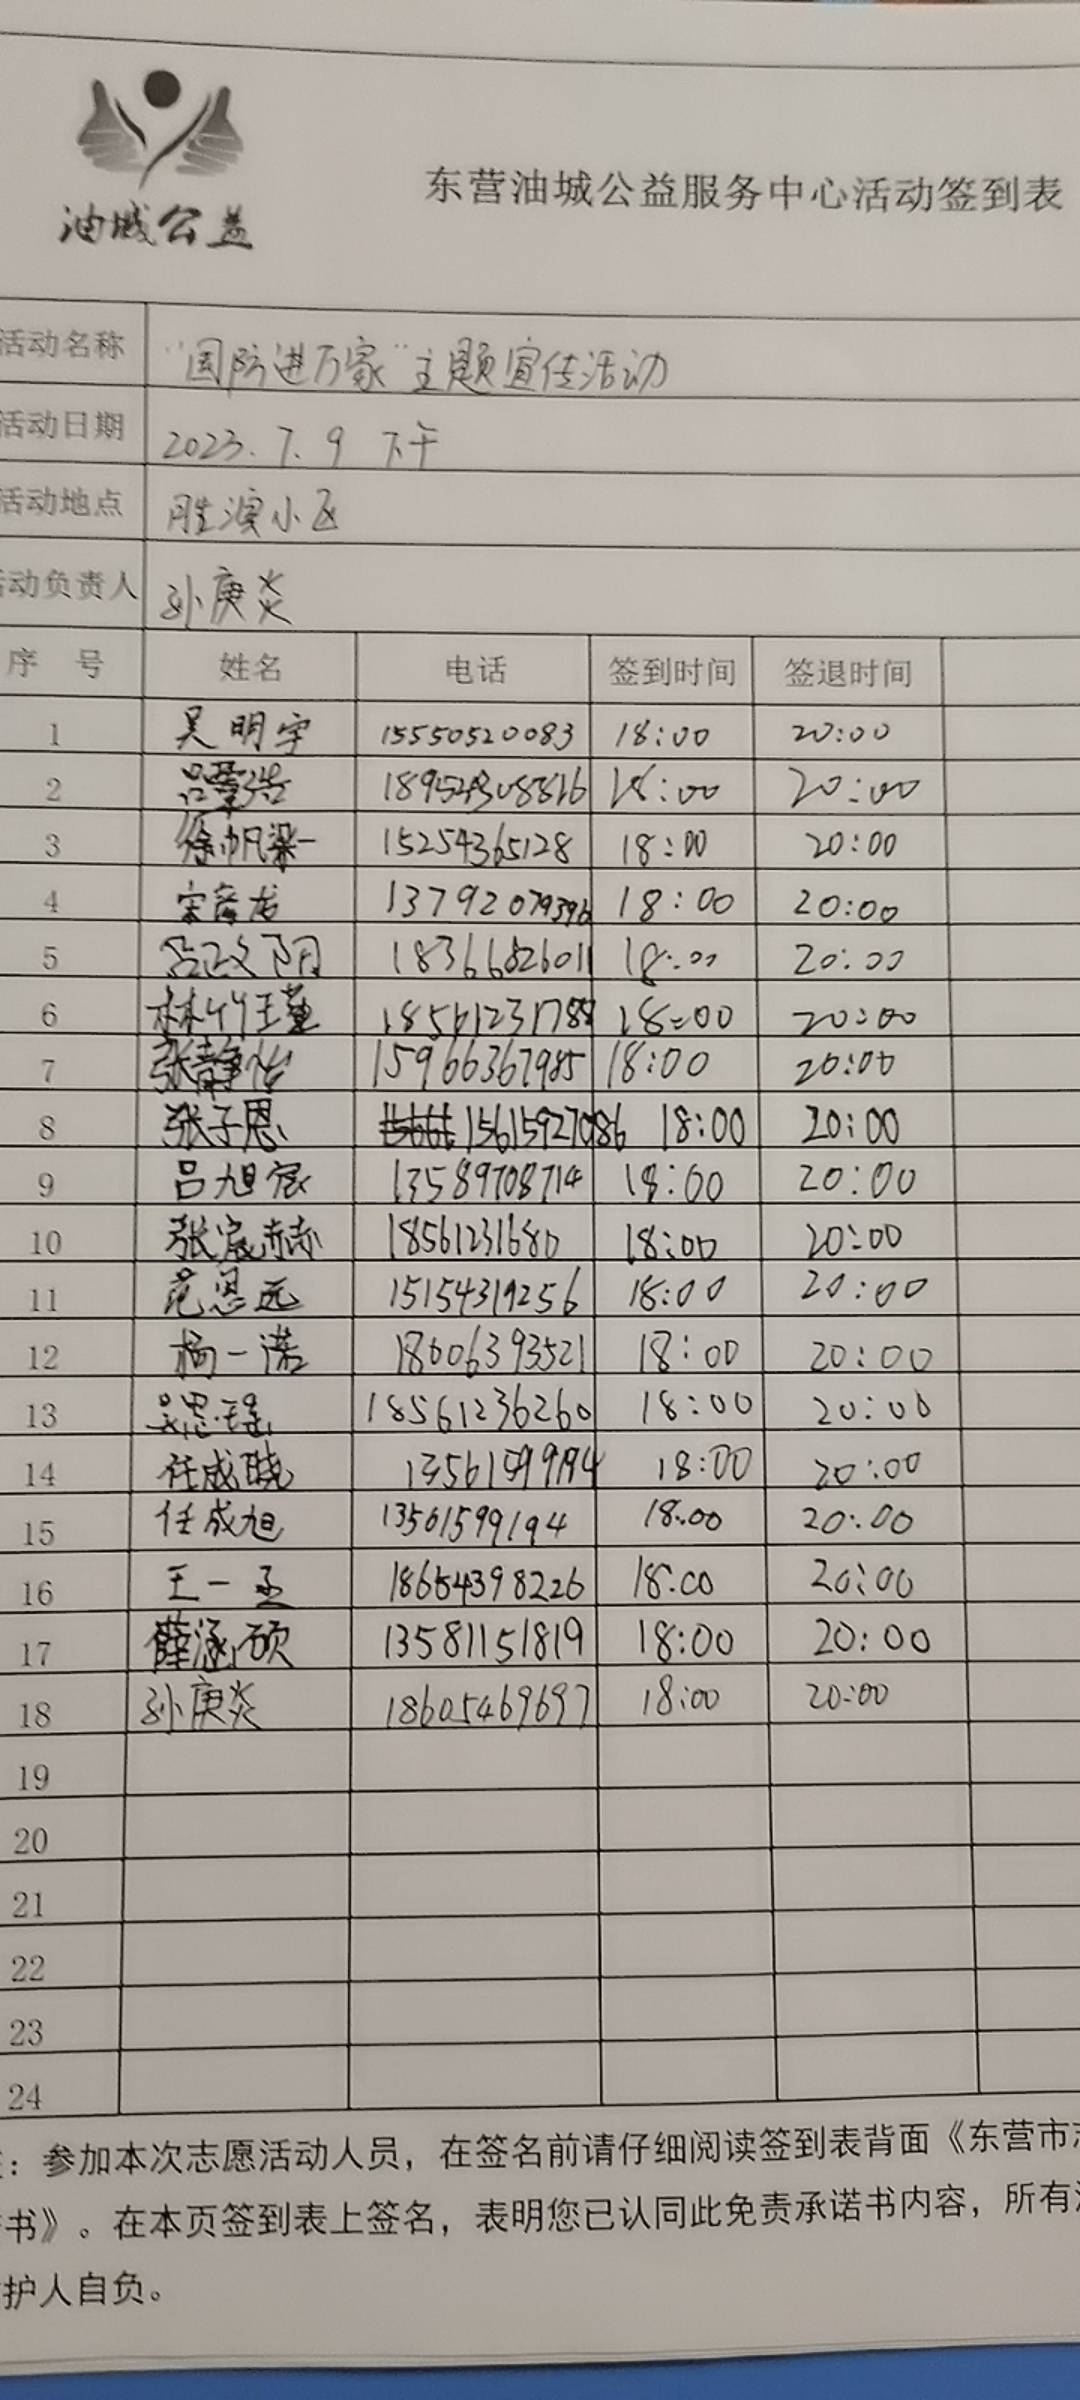 油城公益
东营油城公益服务中心活动签到表
活动名称 "国防进万家"主题宣传活动
活动日期 2023.7.9 下午
活动地点 胜滨小区
活动负责人 孙庚炎
序 号 姓名 电话 签到时间 签退时间
1 吴明宇 15550520083 18:00 20:00
2 18:00 20:00
3 徐帆梁一 15254365128 18:00 20:00
4 18:00 20:00
5 吕政阳 18366826011 18:00 20:00
6 林竹瑾 18561231788 18:00 20:00
7 张静怡 15966367985 18:00 20:00
8 张子恩 15615927086 18:00 20:00
9 吕旭宸 13589708714 18:00 20:00
10 张宸赫 18561231680 18:00 20:00
11 范恩远 15154319256 18:00 20:00
12 杨一诺 18606393521 18:00 20:00
13 吴思瑶 18561236260 18:00 20:00
14 任成晓 13561599194 18:00 20:00
15 任成旭 13561599194 18:00 20:00
16 王一丞 18654398226 18:00 20:00
17 薛涵硕 13581151819 18:00 20:00
18 孙庚炎 18605469697 18:00 20:00
19
20
21
22
23
24
：参加本次志愿活动人员，在签名前请仔细阅读签到表背面《东营市志
书》。在本页签到表上签名，表明您已认同此免责承诺书内容，所有
护人自负。